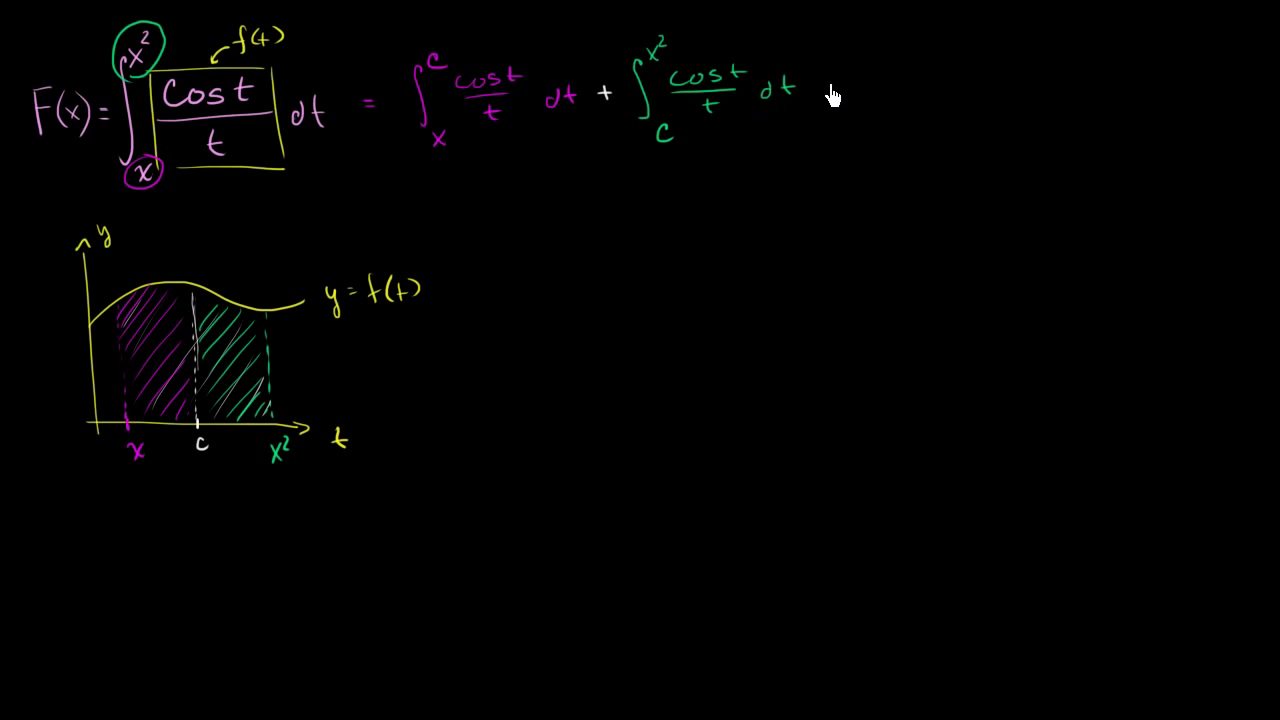 f(t)
F(x) = ∫_x^{x²} cos t / t dt = ∫_x^c cos t / t dt + ∫_c^{x²} cos t / t dt
y
y = f(t)
x c x² t